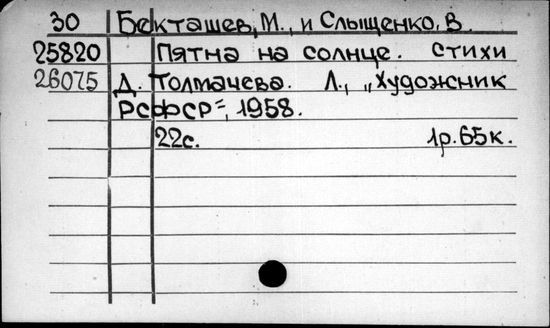 30 Бекташев, М., и Слыщенко, В.
25820 Пятна на солнце. Стихи
26075 Д. Толмачева. Л., „Художник
РСФСР", 1958.
22с. 1р. 65к.